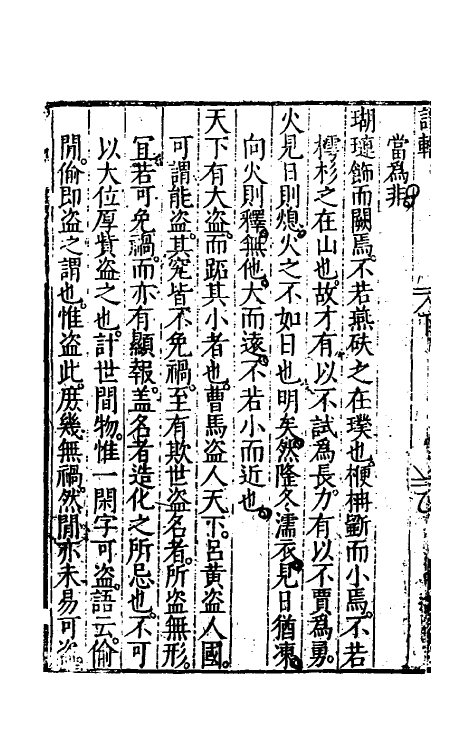 當爲非
瑚璉飾而闕焉不若燕砆之在璞也楩枏斵而小焉不若
樗杉之在山也故才有以不試爲長力有以不賈爲勇
火見日則熄火之不如日也明矣然隆冬濡衣見日猶凍
向火則釋無他大而遠不若小而近也
天下有大盜而跖其小者也曹馬盜人天下呂黃盜人國
可謂能盜其究皆不免禍至有欺世盜名者所盜無形
宜若可免禍而亦有顯報蓋名者造化之所忌也不可
以大位厚貲盜之也計世間物惟一閑字可盜語云偷
閒偷即盜之謂也惟盜此庶幾無禍然閒亦未易可盜